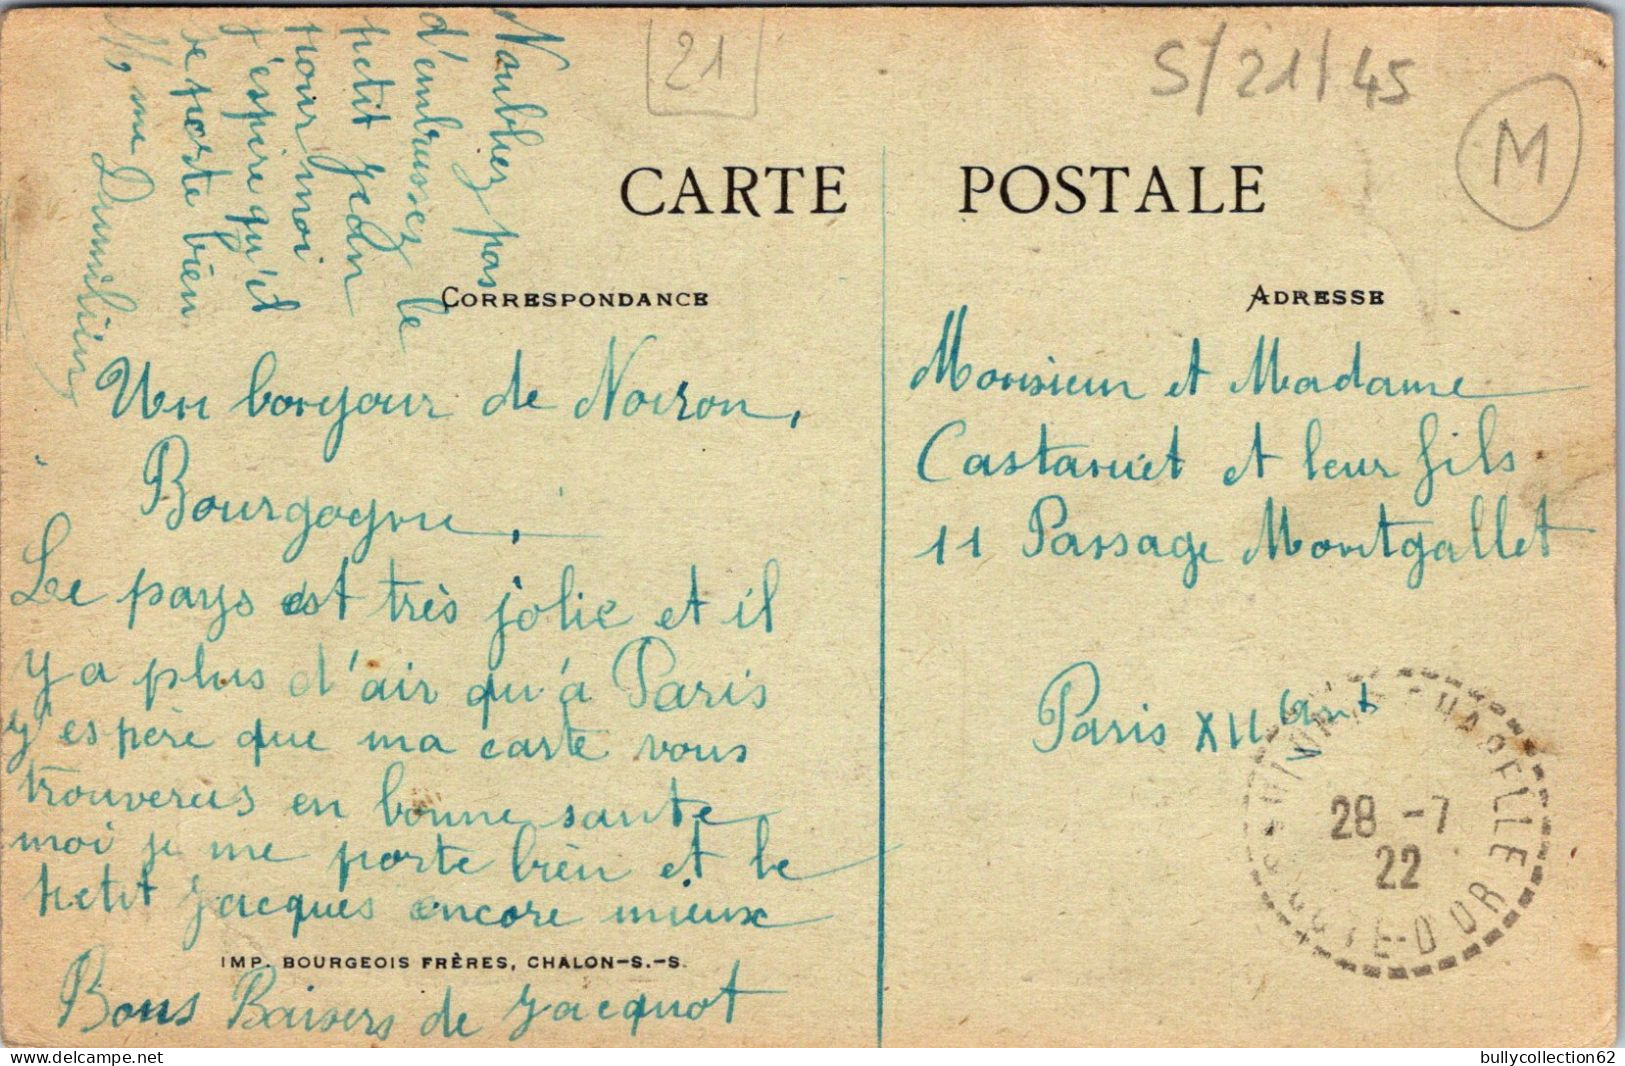 21
S/21/45
M
CARTE POSTALE
CORRESPONDANCE
ADRESSE
Noubliez pas
d'embrassez le
petit Jedn
pour moi
j'espire qu'il
se porte bien
Mme
Un bonjour de Noiron,
Bourgogne,
Le pays est très jolie et il
y a plus d'air qu'à Paris
j'espère que ma carte vous
trouverus en bonne sante
moi je me porte bien et le
petit Jacques encore mieux
IMP. BOURGEOIS FRÈRES, CHALON-S.-S.
Bons Baisers de Jacquot
Monsieur et Madame
Castanuet et leur fils
11 Passage Montgallet
Paris XII
CHAPELLE
28 -7
22
COTE-D'OR
bullycollection62